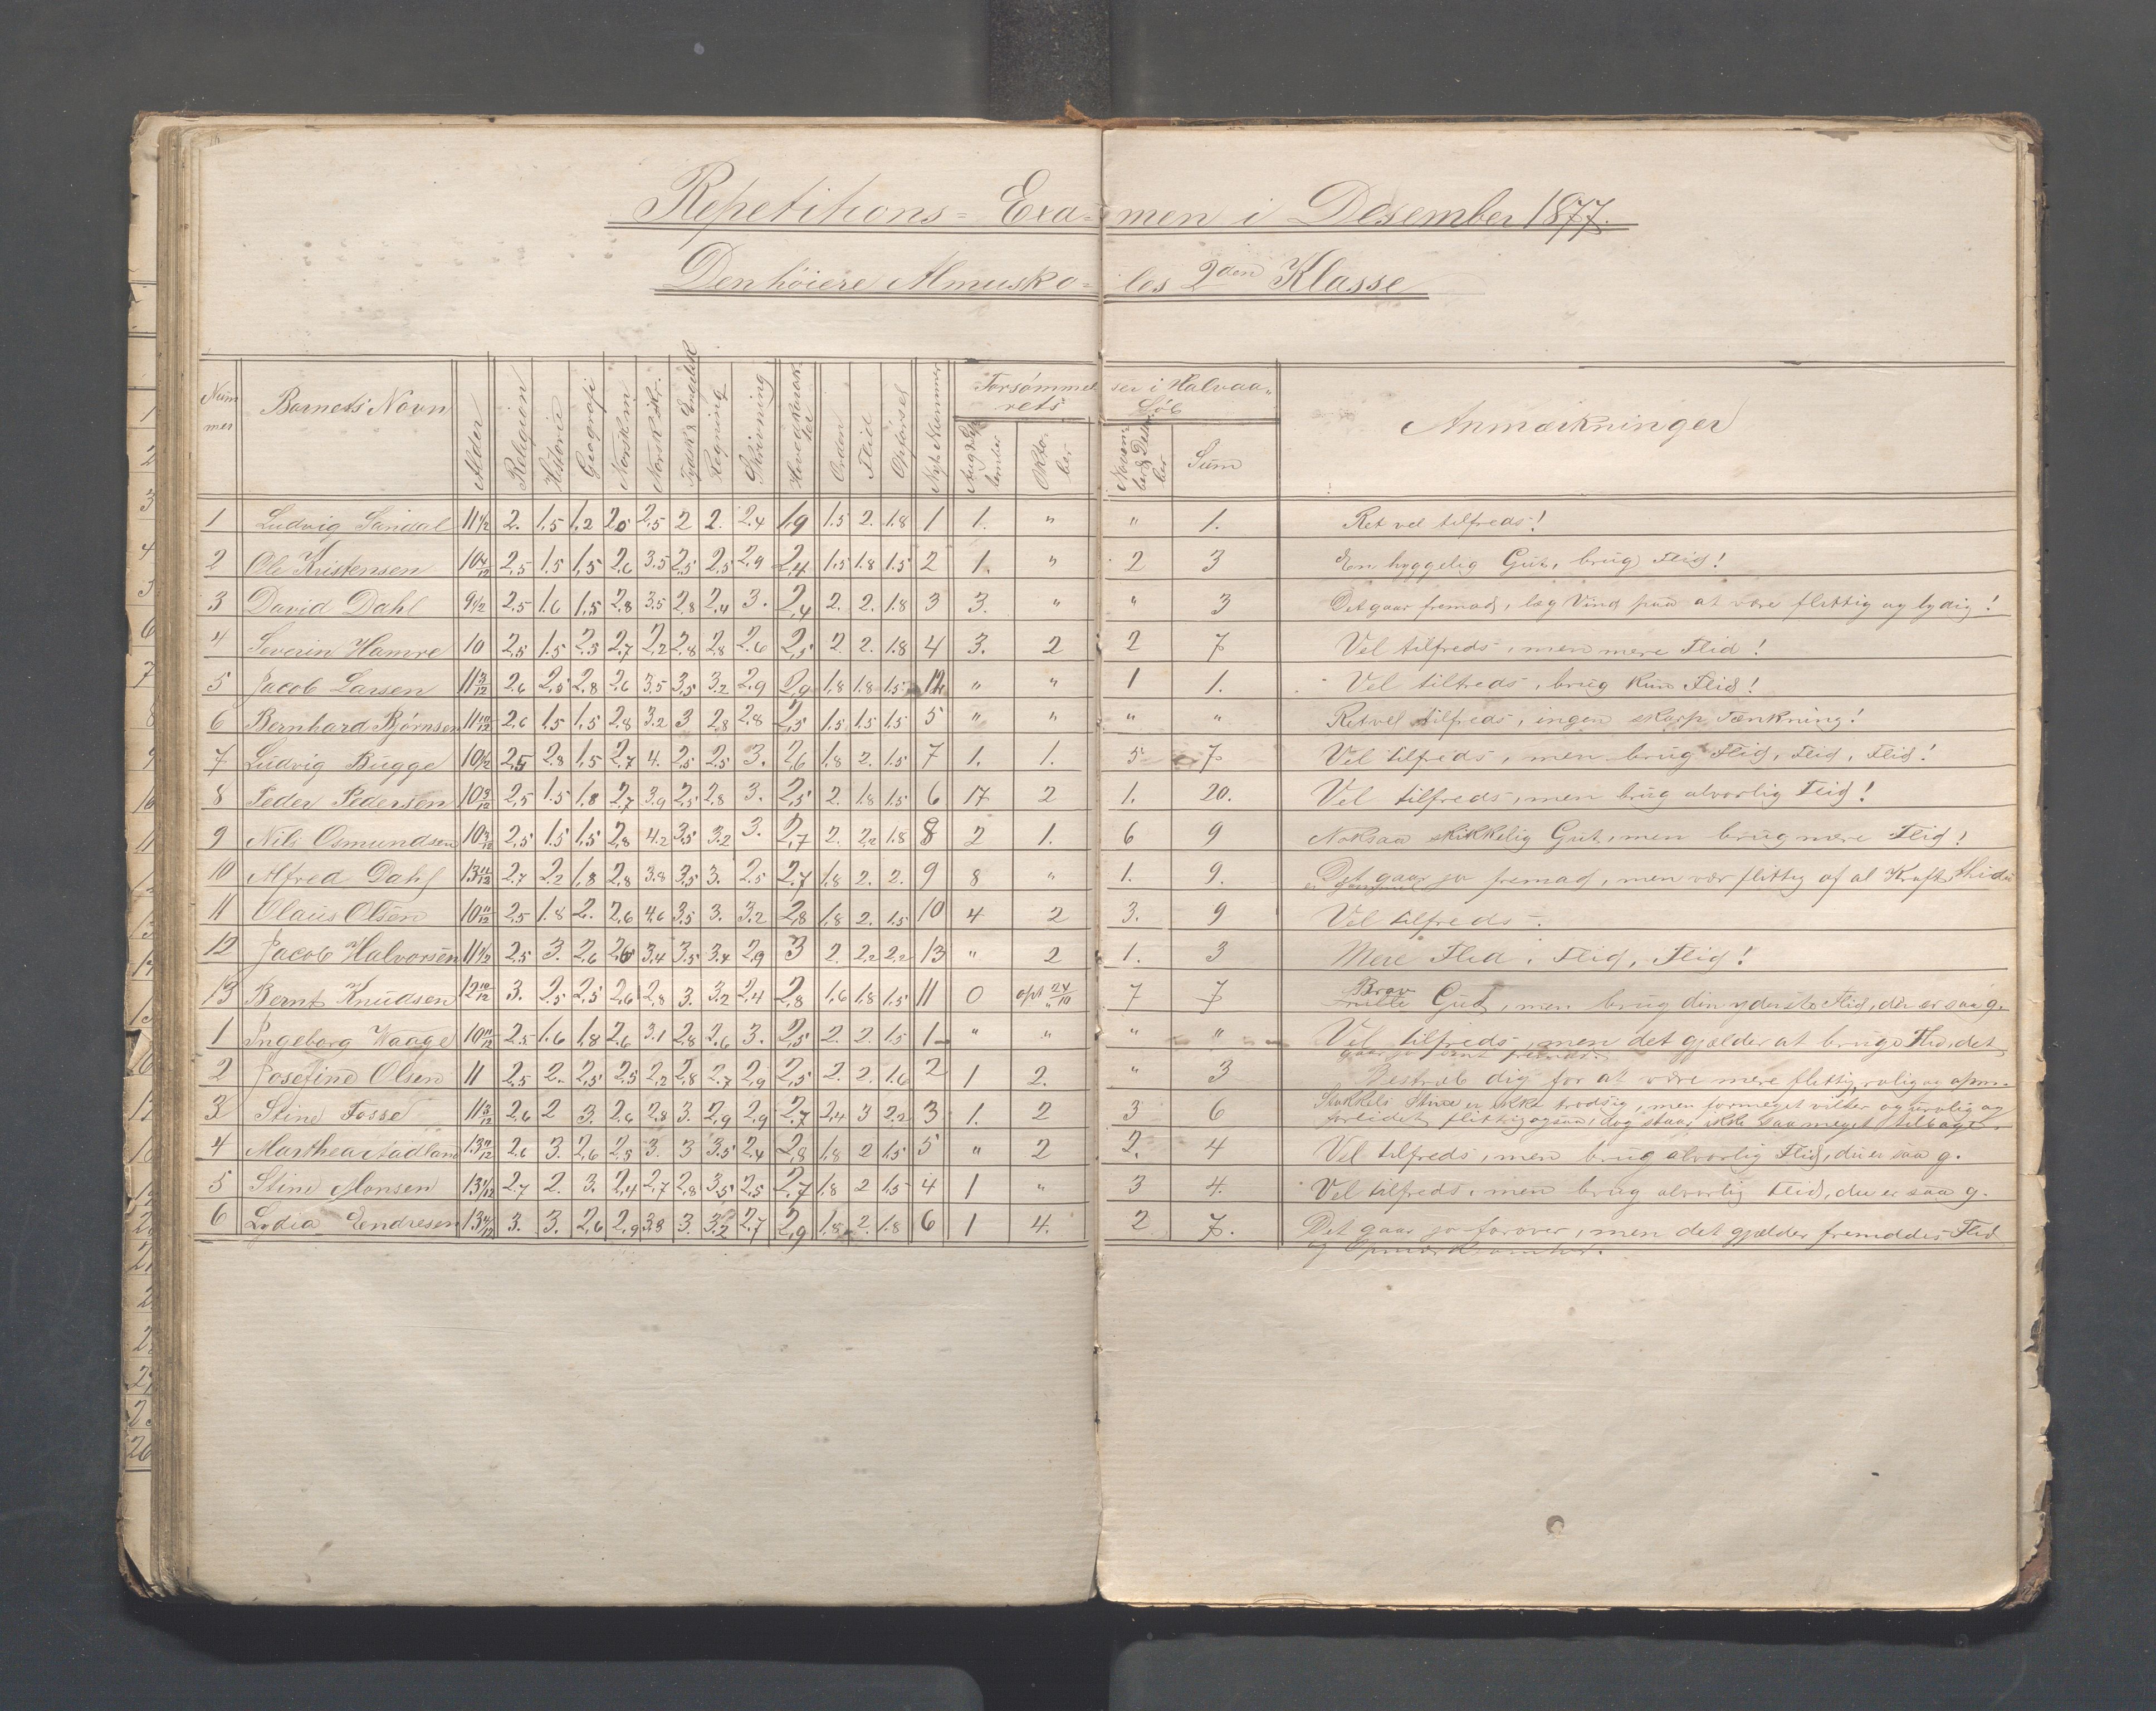 Repetitions=Exa=men i Desember 1877.
Den höiere Almusko=les 2den Klasse
Nummer Barnets Navn Alder Religion Historie Geografi Norsk m. Norsk skr. Tydsk & Engelsk Regning Skrivning Hovedkarakter Orden Flid Opförsel Nyt Nummer Forsömmelser i Halvaarets Löb Aug & September Oktober November & Desember Sum Anmærkninger
1 Ludvig Sandal 11 1/2 2. 1.5 1,2 2,0 2,5 2 2. 2.4 1,9 1.5 2. 1.8 1 1. " " 1. Ret vel tilfreds!
2 Ole Kristensen 10 4/12 2,5 1.5 1,5 2,6 3.5 2,5 2,5 2,9 2,4 1.5 1.8 1.5 2 1. " 2 3 En hyggelig Gut, brug Flid!
3 David Dahl 9 1/2 2.5 1.6 1,5 2,8 3.5 2,8 2,4 3. 2,4 2. 2. 1.8 3 3. " " 3 Det gaar fremad, læg Vind paa at være flittig og lydig!
4 Severin Hamre 10 2,5 1.5 2.5 2,7 2,2 2,8 2,8 2.6 2,5 2. 2. 1.8 4 3. 2 2 7 Vel tilfreds, men mere Flid!
5 Jacob Larsen 11 3/12 2,6 2,5 2,8 2,6 3,5 3,5 3,2 2,9 2,9 1,8 1.8 1.5 12 " " 1 1. Vel tilfreds, brug kun Flid!
6 Bernhard Björnsen 11 10/12 2,6 1.5 1,5 2,8 3,2 3 2,8 2,8 2,5 1.5 1.5 1.5 5 " " " " Ret vel tilfreds, ingen skarp Tænkning!
7 Ludvig Bugge 10 1/2 2,5 2.8 1,5 2,7 4. 2,5 2.5 3. 2,6 1.8 2. 1.5 7 1. 1. 5 7 Vel tilfreds, men brug Flid, Flid, Flid!
8 Peder Pedersen 10 3/12 2,5 1.5 1,8 2,7 3,9 2,5 2,8 3. 2,5 2. 1.8 1.5 6 17 2 1. 20. Vel tilfreds, men brug alvorlig Flid!
9 Nils Osmundsen 10 3/12 2,5 1.5 1,5 2,8 4.2 3,5 3,2 3. 2,7 2. 2,2 1.8 8 2 1. 6 9 Noksaa skikkelig Gut, men brug mere Flid!
10 Alfred Dahl 13 11/12 2.7 2.2 1,8 2,8 3.8 3,5 3. 2.5 2.7 1,8 2. 2. 9 8 " 1. 9. Det gaar jo fremad, men vær flittig af al Kraft, thi du
er gammel
11 Olaus Olsen 10 11/12 2.5 1.8 2. 2,6 4,6 3,5 3. 3.2 2,8 1,8 2. 1.5 10 4 2 3. 9 Vel tilfreds.
12 Jacob Halvorsen 11 1/2 2.5 3. 2,6 2,6 3.4 3,5 3.4 2,9 3 2. 2,2 2,2 13 " 2 1. 3 Mere Flid, Flid, Flid!
13 Bernt Knudsen 12 10/12 3. 2.5 2,5 2,6 2,8 3. 3.2 2,4 2,8 1,6 1.8 1.5 11 0 opt 24/10 7 7 Brav Gut, men brug din yderste Flid, du er saa g.
1 Ingeborg Waage 10 11/12 2.5 1.6 1,8 2,6 3.1 2,8 2,6 3. 2,5 2. 2. 1.5 1 " " " " Vel tilfreds, men det gjælder at bruge Flid, det
gaar jo
2 Josefine Olsen 11 2,5 2. 2,5 2,5 2,2 2,8 2,7 2,9 2,5 2. 2. 1.6 2 1 2. " 3 Bestræb dig for at være mere flittig, rolig og opm.
3 Stine Fosse 11 3/12 2.6 2 3. 2.6 2.8 3. 2,9 2,9 2,7 2,4 3 2.2 3 1. 2 3 6 Stakkels Stine er ikke trodsig, men formeget vilter og urolig og
flittig ogsaa, dog staar ikke saa meget tilbage.
4 Marthea Stadland 13 11/12 2.6 3. 2,6 2,5 3. 3 3.5 2,4 2,8 1,8 2 1.5 5 " 2 2. 4 Vel tilfreds, men brug alvorlig Flid, du er saa g.
5 Stine Monsen 13 1/12 2.7 2. 3. 2,4 2,7 2,8 3,5 2,5 2,7 1,8 2 1.5 4 1 " 3 4. Vel tilfreds, men brug alvorlig Flid, du er saa g.
6 Lydia Endresen 13 4/12 3. 3. 2,6 2,9 3.8 3. 3,2 2,7 2,9 1.8 2 1.8 6 1 4. 2 7. Det gaar jo forover, men det gjælder fremdeles Flid
og Opmærksomhed.